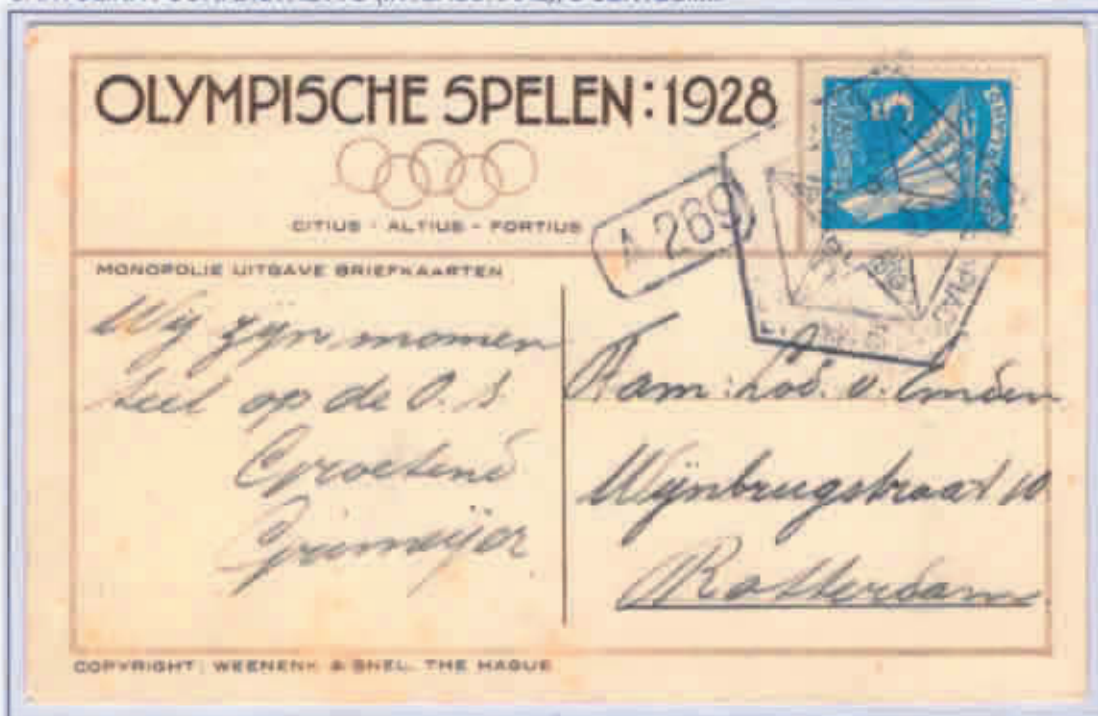 OLYMPISCHE SPELEN: 1928
CITIUS - ALTIUS - FORTIUS
A 269
5
MONOPOLIE UITGAVE BRIEFKAARTEN
Wij zijn momen
teel op de O. S
Groetend
Fam: Lod. v. Emden
Wijnbrugstraat 10
Rotterdam
COPYRIGHT: WEENENK & SNEL. THE HAGUE